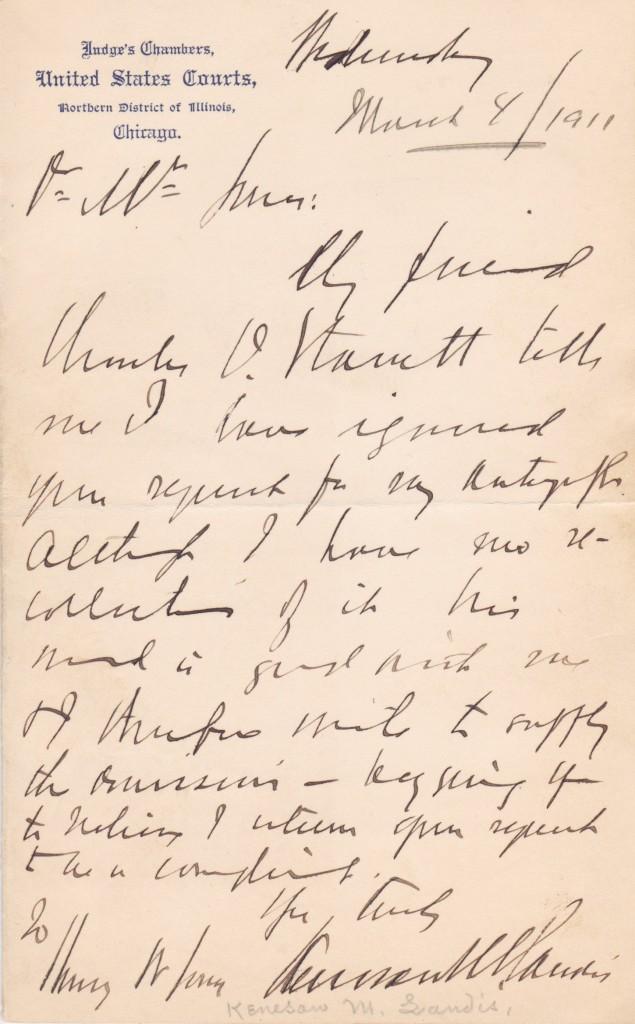 Judge's Chambers,
United States Courts,
Northern District of Illinois,
Chicago.
Wednesday
March 8/1911
Dr Mr Jones:
My friend
Charles D. Starrett tells
me I have ignored
your request for my autograph.
Although I have no re-
collection of it his
word is good with me
& I therefore write to supply
the omission — begging you
to believe I esteem your request
to be a compliment.
Yrs truly
Kenesaw M Landis
To
Henry W Jones
Kenesaw M. Landis.